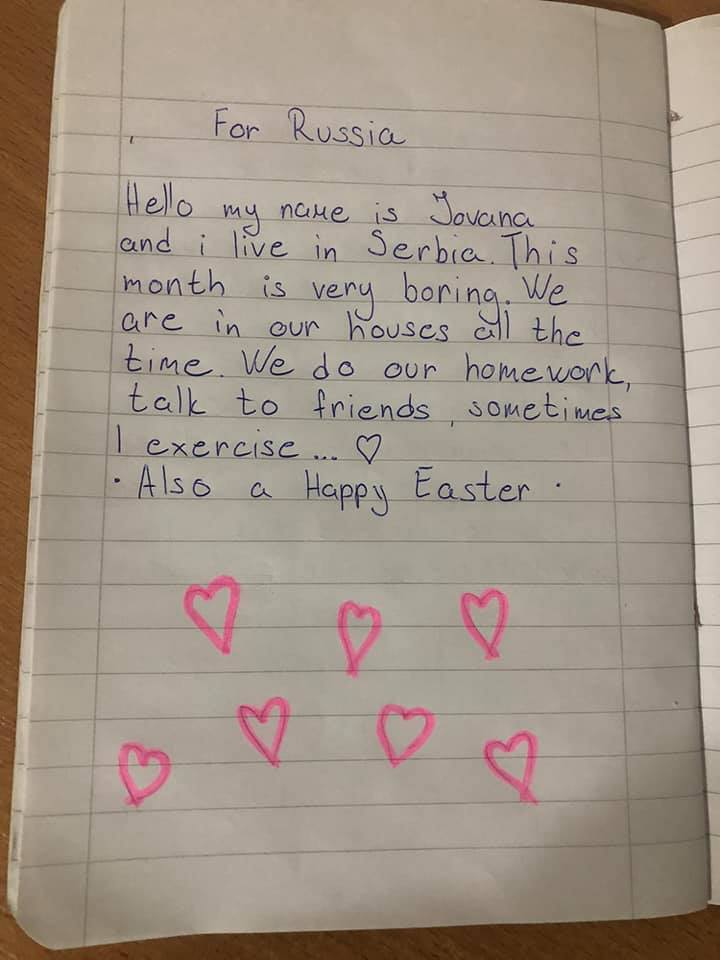 For Russia
Hello my name is Jovana
and i live in Serbia. This
month is very boring. We
are in our houses all the
time. We do our homework,
talk to friends, sometimes
I exercise... ♡
· Also a Happy Easter ·